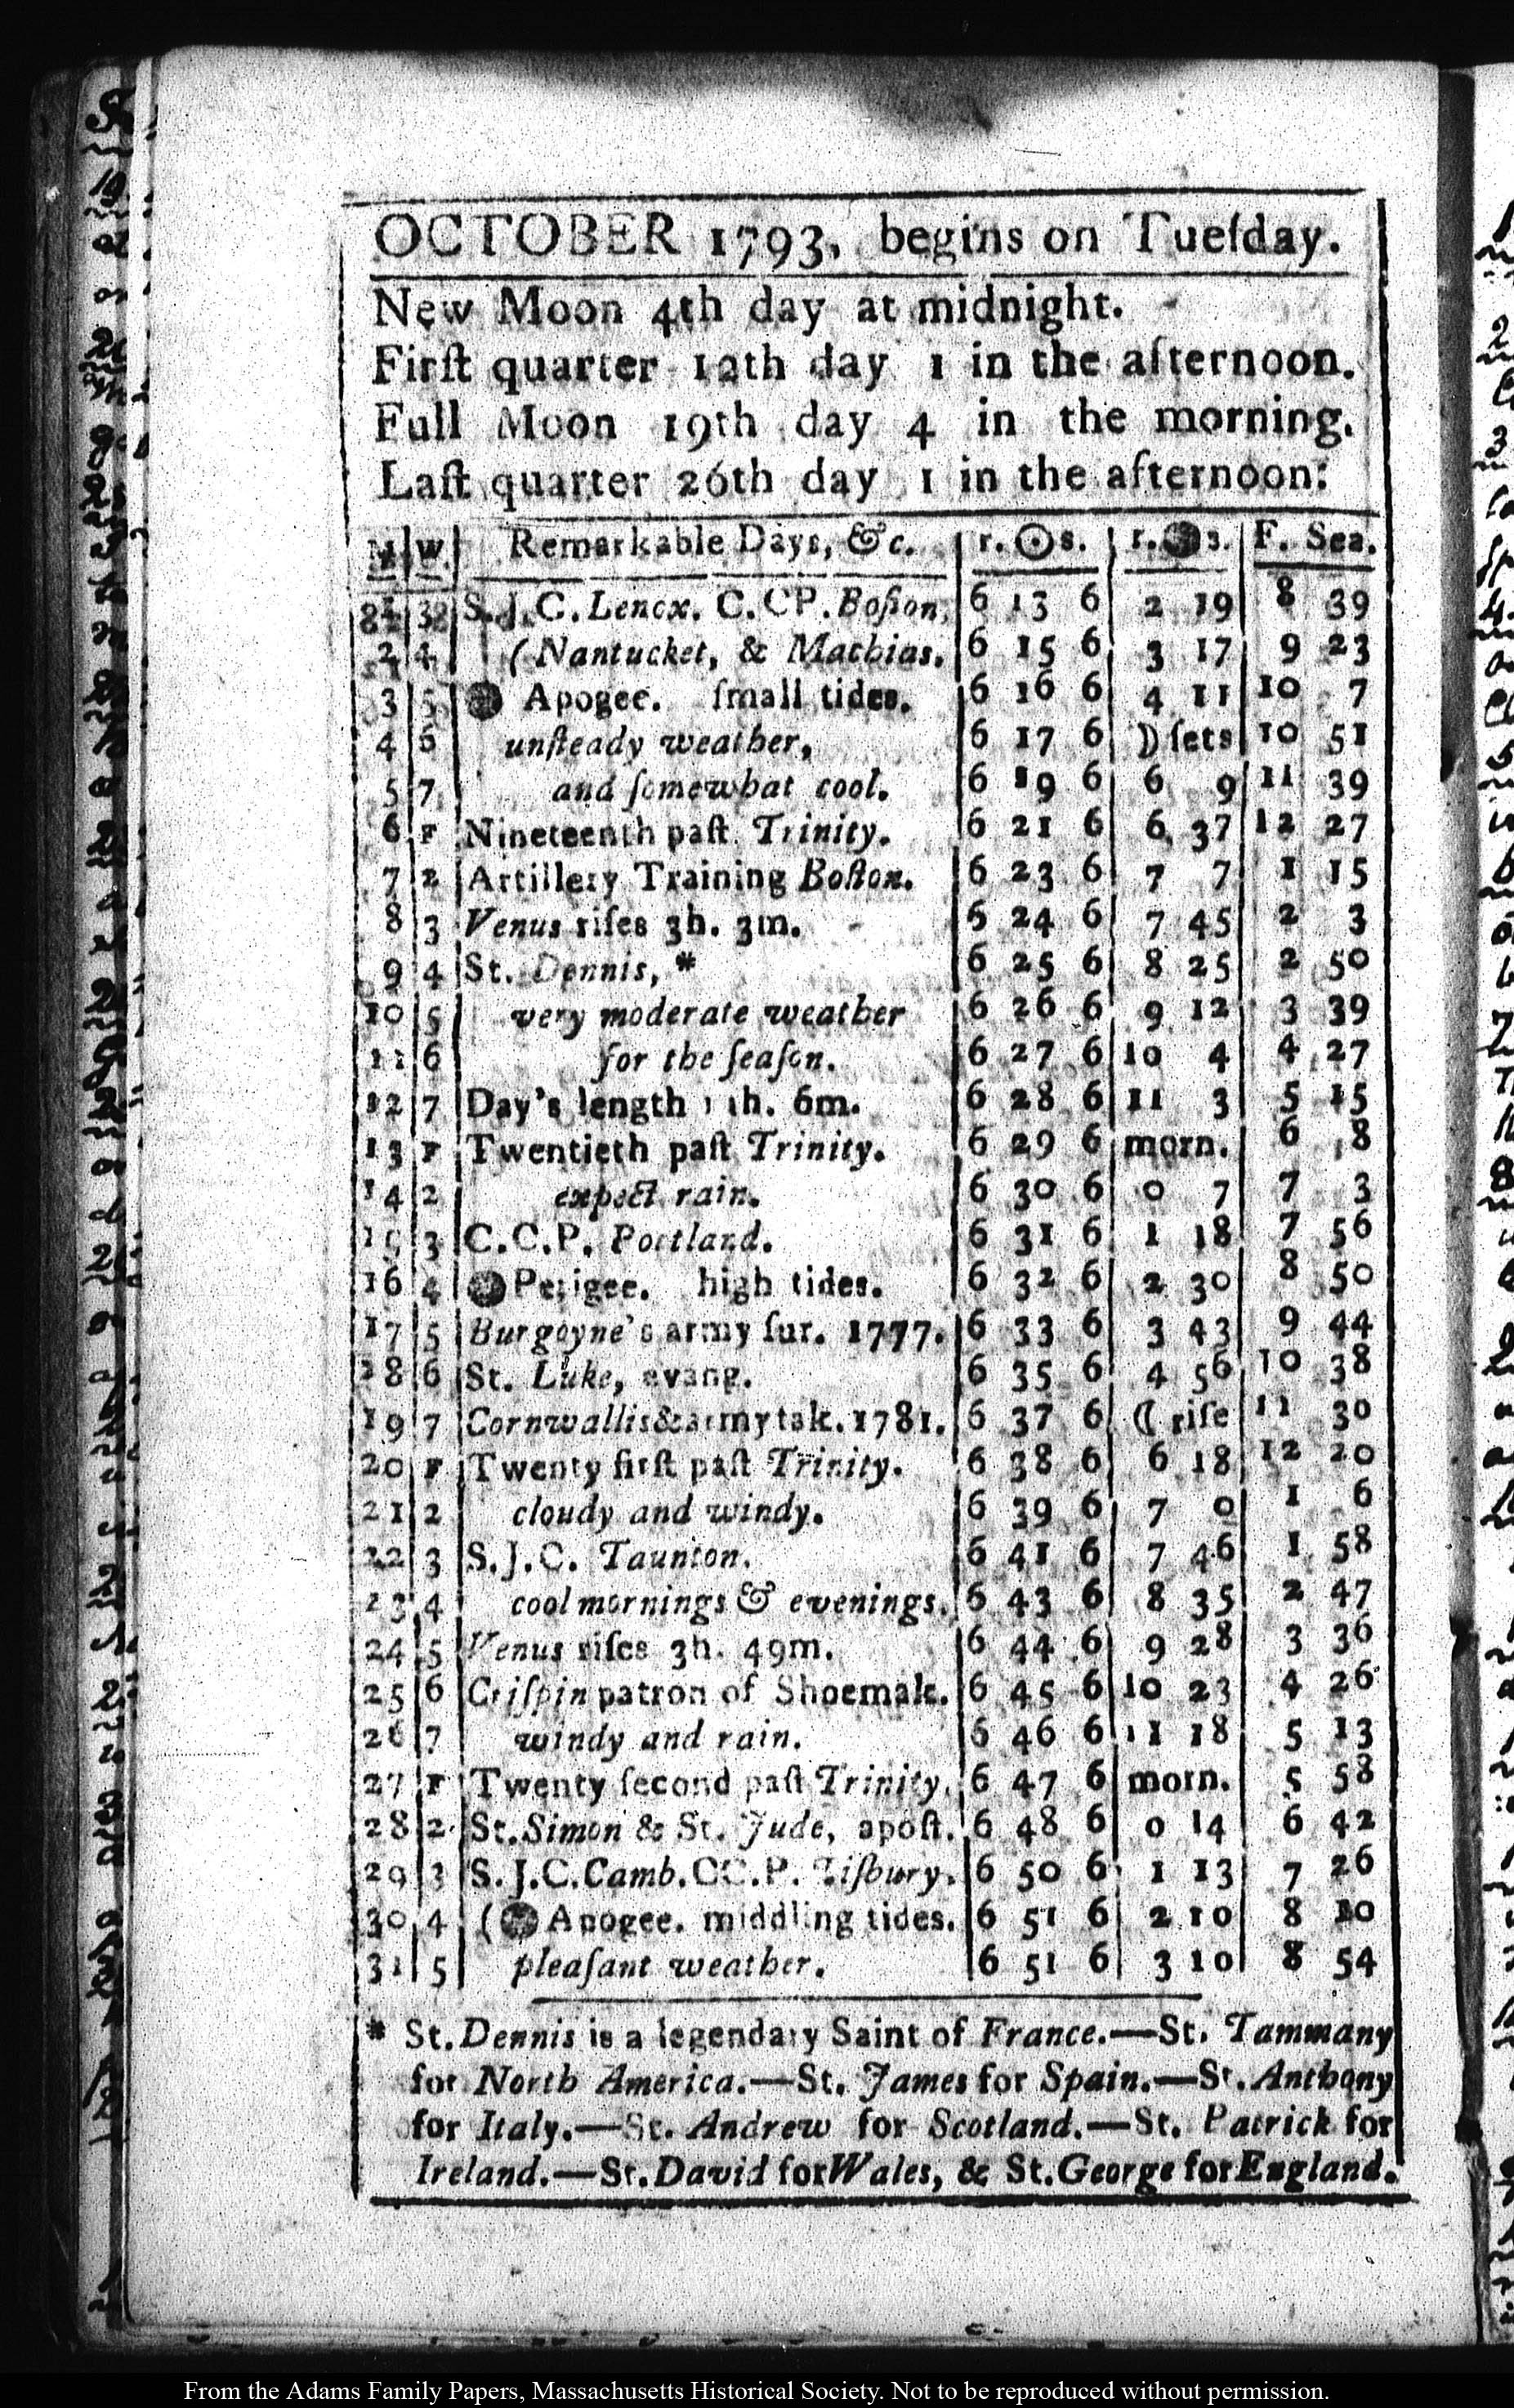 OCTOBER 1793, begins on Tueſday.
New Moon 4th day at midnight.
Firſt quarter 12th day 1 in the afternoon.
Full Moon 19th day 4 in the morning.
Laſt quarter 26th day 1 in the afternoon:
M W. Remarkable Days, &c. r. ☉ s. r. s. F. Sea.
S. J. C. Lenox. C. CP. Boſton, 6 13 6 2 19 8 39
2 4 (Nantucket, & Machias. 6 15 6 3 17 9 23
3 5 Apogee. ſmall tides. 6 16 6 4 11 10 7
4 6 unſteady weather, 6 17 6 ☽ ſets 10 51
5 7 and ſomewhat cool. 6 19 6 6 9 11 39
6 F Nineteenth paſt Trinity. 6 21 6 6 37 12 27
7 2 Artillery Training Boſton. 6 23 6 7 7 1 15
8 3 Venus riſes 3h. 3m. 6 24 6 7 45 2 3
9 4 St. Dennis, * 6 25 6 8 25 2 50
10 5 very moderate weather 6 26 6 9 12 3 39
11 6 for the ſeaſon. 6 27 6 10 4 4 27
12 7 Day's length 11h. 6m. 6 28 6 11 3 5 15
13 F Twentieth paſt Trinity. 6 29 6 morn. 6 8
14 2 expect rain. 6 30 6 0 7 7 3
15 3 C.C.P. Portland. 6 31 6 1 18 7 56
16 4 Perigee. high tides. 6 32 6 2 30 8 50
17 5 Burgoyne's army ſur. 1777. 6 33 6 3 43 9 44
18 6 St. Luke, evang. 6 35 6 4 56 10 38
19 7 Cornwallis & army tak. 1781. 6 37 6 ☾ riſe 11 30
20 F Twenty firſt paſt Trinity. 6 38 6 6 18 12 20
21 2 cloudy and windy. 6 39 6 7 0 1 6
22 3 S.J.C. Taunton. 6 41 6 7 46 1 58
23 4 cool mornings & evenings. 6 43 6 8 35 2 47
24 5 Venus riſes 3h. 49m. 6 44 6 9 28 3 36
25 6 Criſpin patron of Shoemak. 6 45 6 10 23 4 26
26 7 windy and rain. 6 46 6 11 18 5 13
27 F Twenty ſecond paſt Trinity. 6 47 6 morn. 5 58
28 2 St. Simon & St. Jude, apoſt. 6 48 6 0 14 6 42
29 3 S.J.C. Camb. CC.P. Tiſbury. 6 50 6 1 13 7 26
30 4 ( Apogee. middling tides. 6 51 6 2 10 8 10
31 5 pleaſant weather. 6 51 6 3 10 8 54
* St. Dennis is a legendary Saint of France.—St. Tammany
for North America.—St. James for Spain.—St. Anthony
for Italy.—St. Andrew for Scotland.—St. Patrick for
Ireland.—St. David for Wales, & St. George for England.
From the Adams Family Papers, Massachusetts Historical Society. Not to be reproduced without permission.